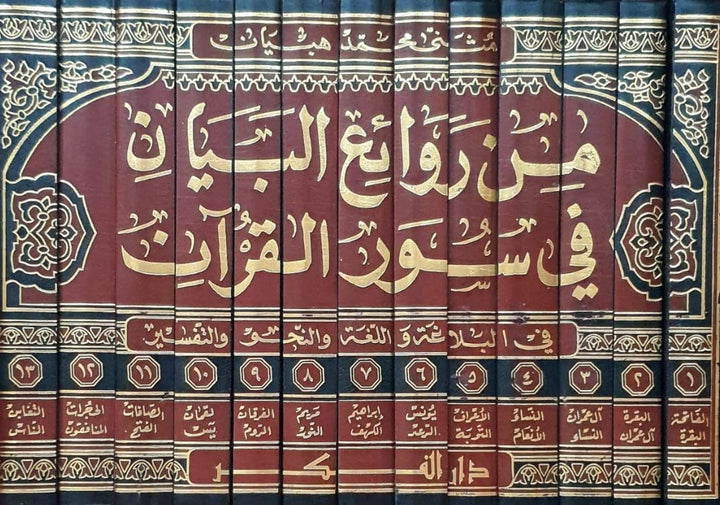 مثنى محمد هبيان
مِن رَوَائِعِ البَيَانِ
في سُوَرِ القُرآنِ
في البلاغة واللغة والنحو والتفسير
١ ٢ ٣ ٤ ٥ ٦ ٧ ٨ ٩ ١٠ ١١ ١٢ ١٣
الفاتحة البقرة آل عمران النساء الأعراف يونس إبراهيم مريم الفرقان لقمان الصافات الحجرات التغابن
البقرة آل عمران النساء الأنعام التوبة الرعد الكهف النور الروم يس الفتح المنافقون الناس
دار الفكر